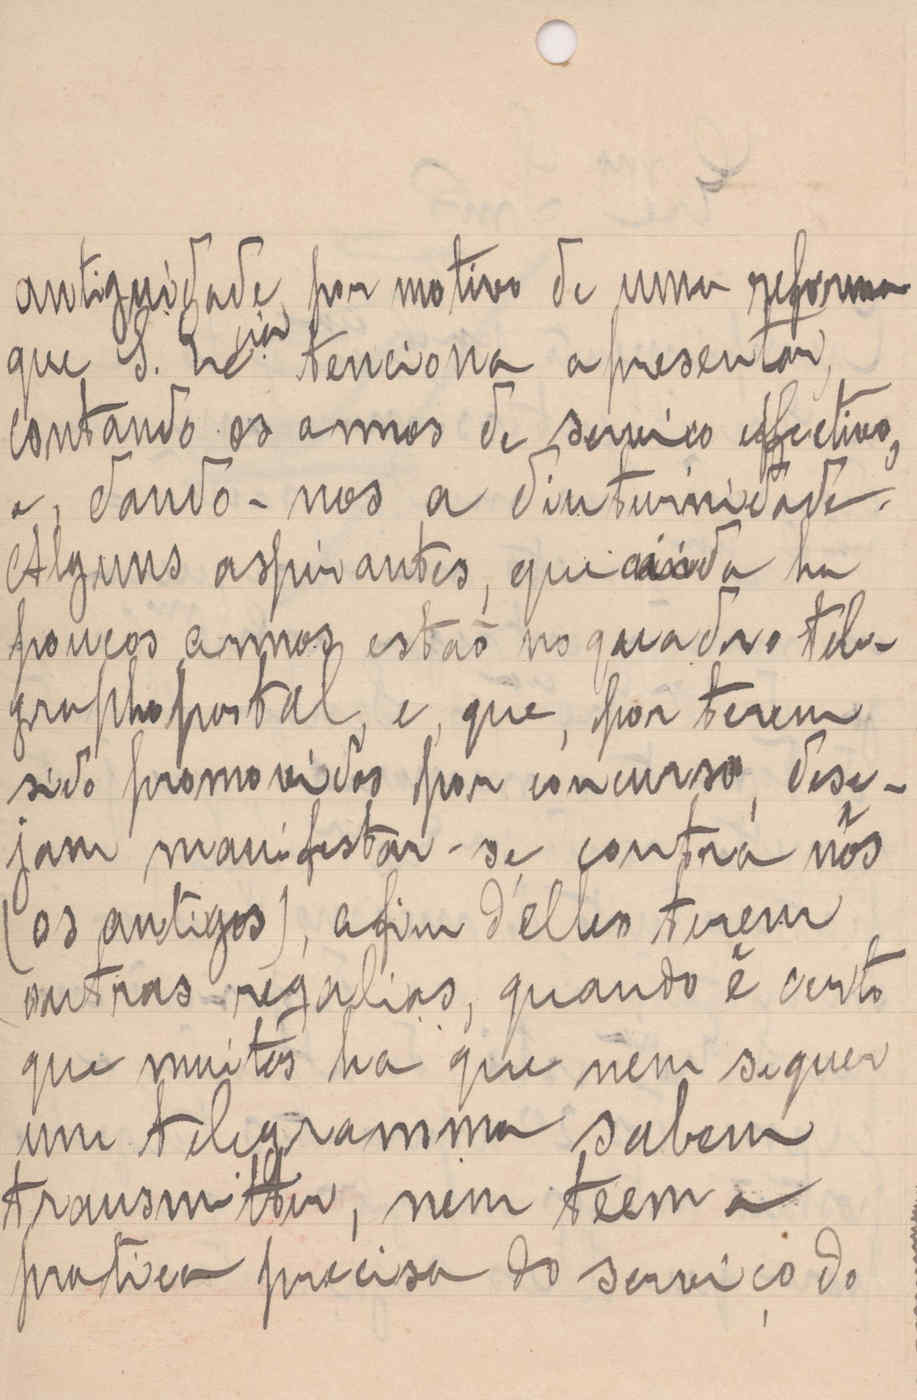 antiguidade, por motivo de uma reforma
que S. Ex.cia tenciona apresentar,
contando os annos de serviço effectivo,
e, dando-nos a diuturnidade.
Alguns aspirantes, que ainda ha
poucos annos estão no quadro tele-
grapho postal, e, que, por terem
sido promovidos por concurso, dese-
jam manifestar-se contra nós
(os antigos), afim d'elles terem
outras regalias, quando é certo
que muitos ha que nem sequer
um telegramma sabem
transmittir, nem teem a
pratica precisa do serviço do